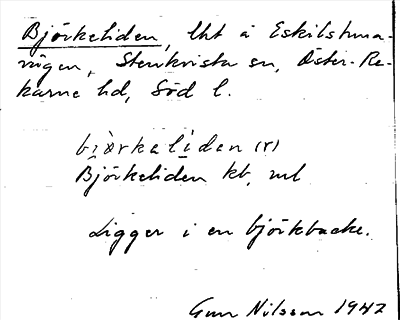 Björkeliden, lht å Eskilstuna-
vägen, Stenkvista sn, Öster-Re-
karne hd, Söd l.
björkeliden (r)
Björkeliden kb, ml
Ligger i en björkbacke.
Gun Nilsson 1947